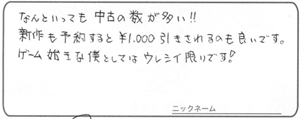 なんといっても中古の数が多い!!
新作も予約すると¥1.000引きされるのも良いです。
ゲーム好きな僕としてはウレシイ限りです!
ニックネーム